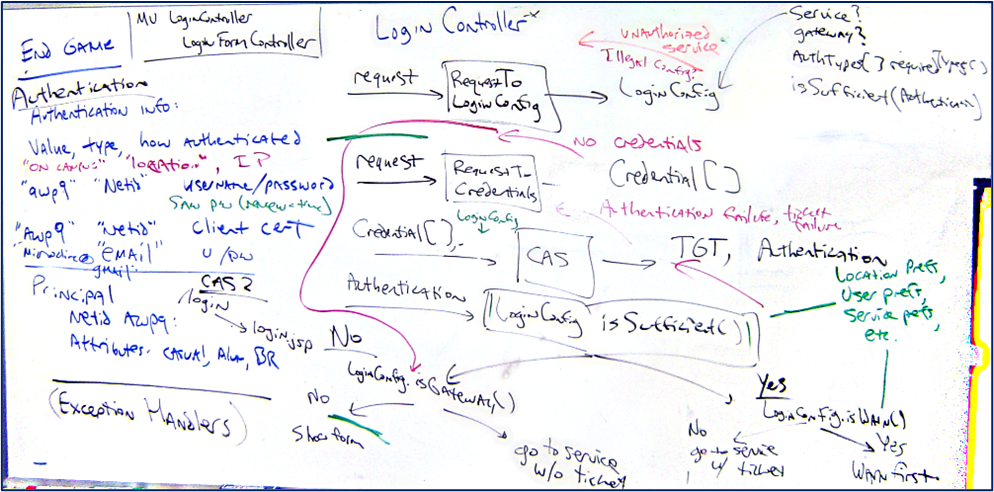 END GAME
MV LoginController
LoginFormController
Login Controller
Authentication
Authentication info:
Value, type, how authenticated
"ON CAMPUS" "location", IP
"awp9" "Netid" username/password
"Awp9" "Netid" Client cert
"EMAIL" u/pw
gmail
Principal
Netid Awp9:
Attributes. CASUAL, Alum, BR
(Exception Handlers)
CAS 2
/login
login.jsp
request
RequestTo
LoginConfig
LoginConfig
UNAUTHORIZED
service
Illegal Config?
Service?
gateway?
AuthTypes[] required
isSufficient(Authentication)
NO credentials
request
RequestTo
Credentials
Credential[]
Authentication failure, ticket
failure
LoginConfig
Credential[],
CAS
TGT, Authentication
Location prefs,
User prefs,
Service prefs,
etc.
Authentication
LoginConfig isSufficient()
No
LoginConfig.isGateway()
No
Show form
go to service
w/o ticket
Yes
LoginConfig.isWarn()
No
go to service
w/ ticket
Yes
Warn first